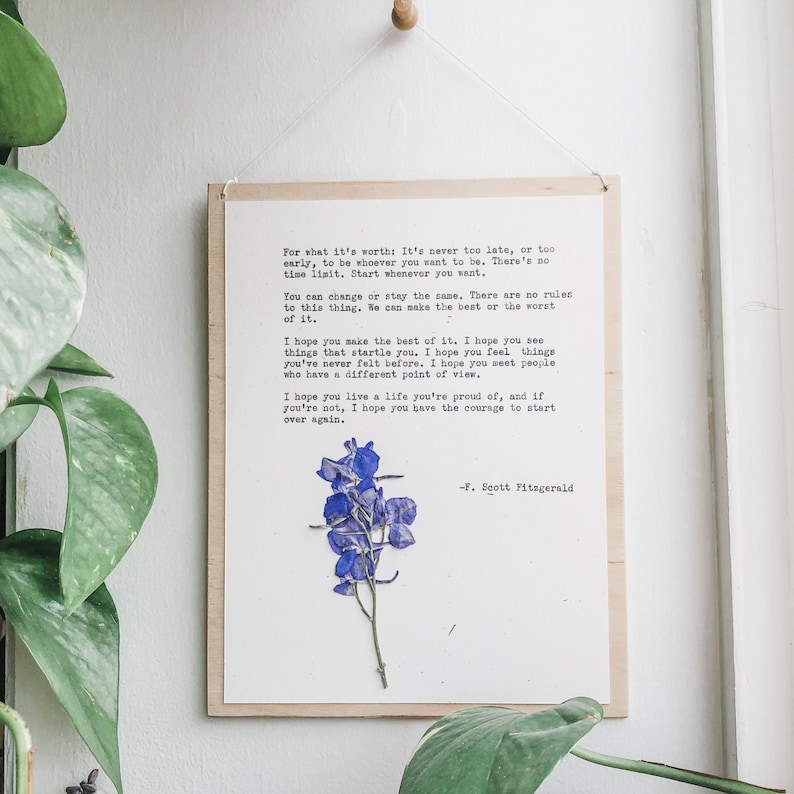 For what it's worth: It's never too late, or too
early, to be whoever you want to be. There's no
time limit. Start whenever you want.
You can change or stay the same. There are no rules
to this thing. We can make the best or the worst
of it.
I hope you make the best of it. I hope you see
things that startle you. I hope you feel things
you've never felt before. I hope you meet people
who have a different point of view.
I hope you live a life you're proud of, and if
you're not, I hope you have the courage to start
over again.
-F. Scott Fitzgerald